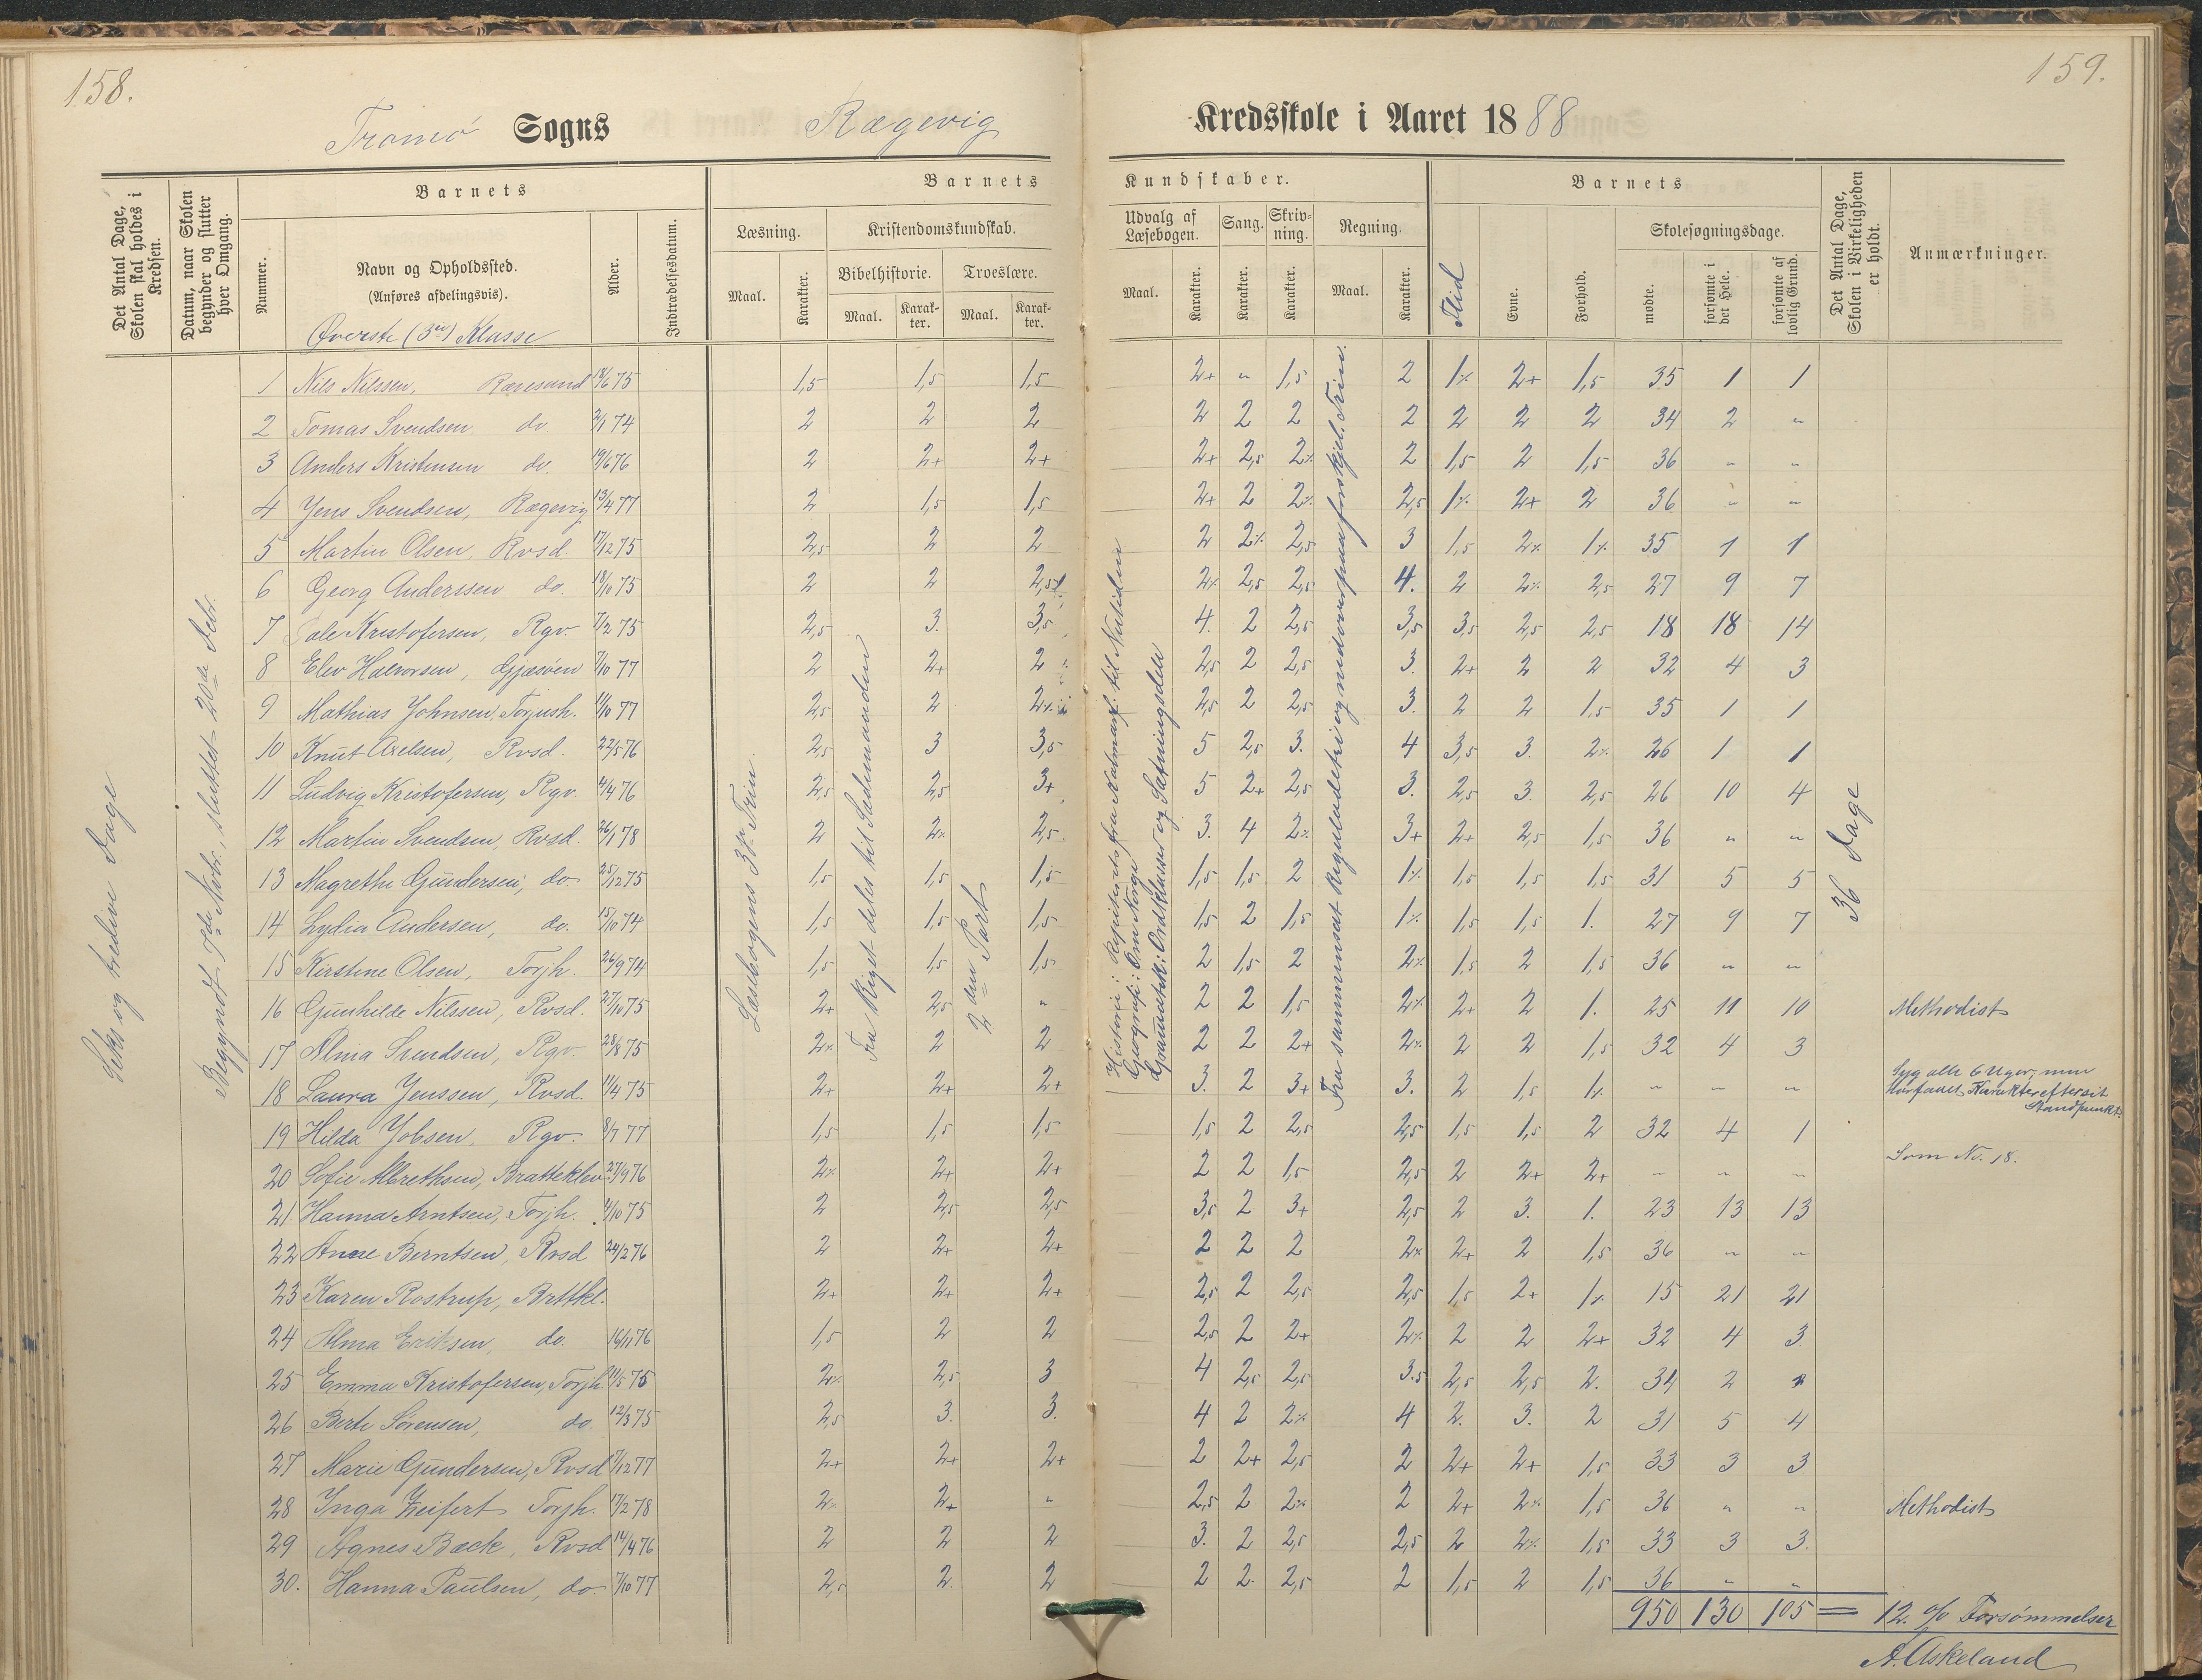 158.
159.
Tromø Sogns Rægevig Kredsskole i Aaret 1888
Det Antal Dage, Skolen skal holdes i Kredsen.
Datum, naar Skolen begynder og slutter hver Omgang.
Nummer.
Barnets
Navn og Opholdssted.
(Anføres afdelingsvis).
Øverste (3die) Klasse
Alder.
Indtrædelsesdatum.
Barnets Kundskaber.
Læsning.
Maal.
Karakter.
Kristendomskundskab.
Bibelhistorie.
Maal.
Karak-ter.
Troeslære.
Maal.
Karak-ter.
Udvalg af Læsebogen.
Maal.
Karakter.
Sang.
Karakter.
Skriv-ning.
Karakter.
Regning.
Maal.
Karakter.
Barnets
Flid
Evne.
Forhold.
Skolesøgningsdage.
mødte.
forsømte i det Hele.
forsømte af lovlig Grund.
Det Antal Dage, Skolen i Virkeligheden er holdt.
Anmærkninger.
Seks og tredive Dage
Begyndt 7de Novbr., sluttet 20de Debr.
Læsebogens 3die Trin.
2den Part
Geografi: Om Norge
36 Dage
1 Nils Nilssen, Rævesand 18/6 75 1,5 1,5 1,5 2+ " 1,5 2 1% 2+ 1,5 35 1 1
2 Tomas Svendsen do 2/1 74 2 2 2 2 2 2 2 2 2 2 34 2 "
3 Anders Kristensen do. 19/6 76 2 2+ 2+ 2+ 2,5 2% 2 1,5 2 1,5 36 " "
4 Jens Svendsen, Rægevig 13/4 77 2 1,5 1,5 2+ 2 2% 2,5 1% 2+ 2 36 " "
5 Martin Olsen, Rvsd. 17/12 75 2,5 2 2 2 2% 2,5 3 1,5 2% 1% 35 1 1
6 Georg Anderssen do. 18/10 75 2 2 2,5 2% 2,5 2,5 4. 2 2% 2,5 27 9 7
7 Kristofersen, Rgv. 7/2 75 2,5 3. 3,5 4. 2 2,5 3,5 3,5 2,5 2,5 18 18 14
8 Elev Halvorsen, Gjæsøen 7/10 77 2 2+ 2 2,5 2 2,5 3. 2+ 2 2 32 4 3
9 Mathias Johnsen, Torjush. 11/10 77 2,5 2 2% 2,5 2 2,5 3. 2 2 1,5 35 1 1
10 Knut Axelsen, Rvsd. 22/5 76 2,5 3 3,5 5 2,5 3. 4 3,5 3. 2% 26 1 1
11 Ludvig Kristofersen, Rgv. 4/4 76 2,5 2,5 3+ 5 2+ 2,5 3. 2,5 3 2,5 26 10 4
12 Martin Svendsen, Rvsd. 26/1 78 2 2% 2,5 3. 4 2% 3+ 2+ 2,5 1,5 36 " "
13 Magrethe Gundersen, do 25/12 75 1,5 1,5 1,5 1,5 1,5 2 1% 1,5 1,5 1,5 31 5 5
14 Lydia Andersen, do. 15/10 74 1,5 1,5 1,5 1,5 2 1,5 1% 1,5 1,5 1. 27 9 7
15 Kirstine Olsen, Torjh. 26/9 74 1,5 1,5 1,5 2 1,5 2 2% 1,5 2 1,5 36 " "
16 Gunhilde Nilssen, Rvsd. 27/10 75 2+ 2,5 " 2 2 1,5 2% 2+ 2 1. 25 11 10 Methodist
17 Alma Svendsen, Rgv. 28/8 75 2% 2 2 2 2 2+ 2% 2 2 1,5 32 4 3
18 Laura Jenssen, Rvsd. 11/4 75 2+ 2+ 2+ 3. 2 3+ 3. 2 1,5 1% " " " Syg alle 6 Uger; men
Karakter efter sit
Standpunkt.
19 Hilda Jobsen, Rgv. 8/7 77 1,5 1,5 1,5 1,5 2 2,5 2,5 1,5 1,5 2 32 4 1
20 Sofie Albrethsen, Bratteklev 27/9 76 2% 2+ 2+ 2 2 1,5 2,5 2 2+ 2+ " " " Som No. 18.
21 Hanna Arntsen, Torjh. 4/10 75 2 2,5 2,5 3,5 2 3+ 2,5 2 3. 1. 23 13 13
22 Anne Berntsen, Rvsd 24/2 76 2 2+ 2+ 2 2 2 2% 2+ 2 1,5 36 " "
23 Karen Rostrup, Brttkl. 2+ 2+ 2+ 2,5 2 2,5 2,5 1,5 2+ 1% 15 21 21
24 Alma Eriksen, do. 16/11 76 1,5 2 2 2,5 2 2+ 2% 2 2 2+ 32 4 3
25 Emma Kristofersen, Torjh. 11/5 75 2% 2,5 3 4 2,5 2,5 3.5 2,5 2,5 2. 34 2
26 Berte Sørensen, do. 12/3 75 2,5 3. 3. 4 2 2% 4 2. 3. 2 31 5 4
27 Marie Gundersen, Rvsd 7/12 77 2+ 2+ 2+ 2 2+ 2,5 2 2+ 2+ 1,5 33 3 3
28 Inga Zeifert Torjh. 17/2 78 2% 2+ " 2,5 2 2% 2 2+ 2% 1,5 36 " " Methodist
29 Agnes Back, Rvsd 14/4 76 2 2 2 3. 2 2,5 2,5 2 2% 1,5 33 3 3.
30. Hanna Paulsen, do. 7/10 77 2,5 2. 2 2 2. 2,5 2 1,5 2 1,5 36 " "
950 130 105 = 12. % Forsømmelser
A. Askeland